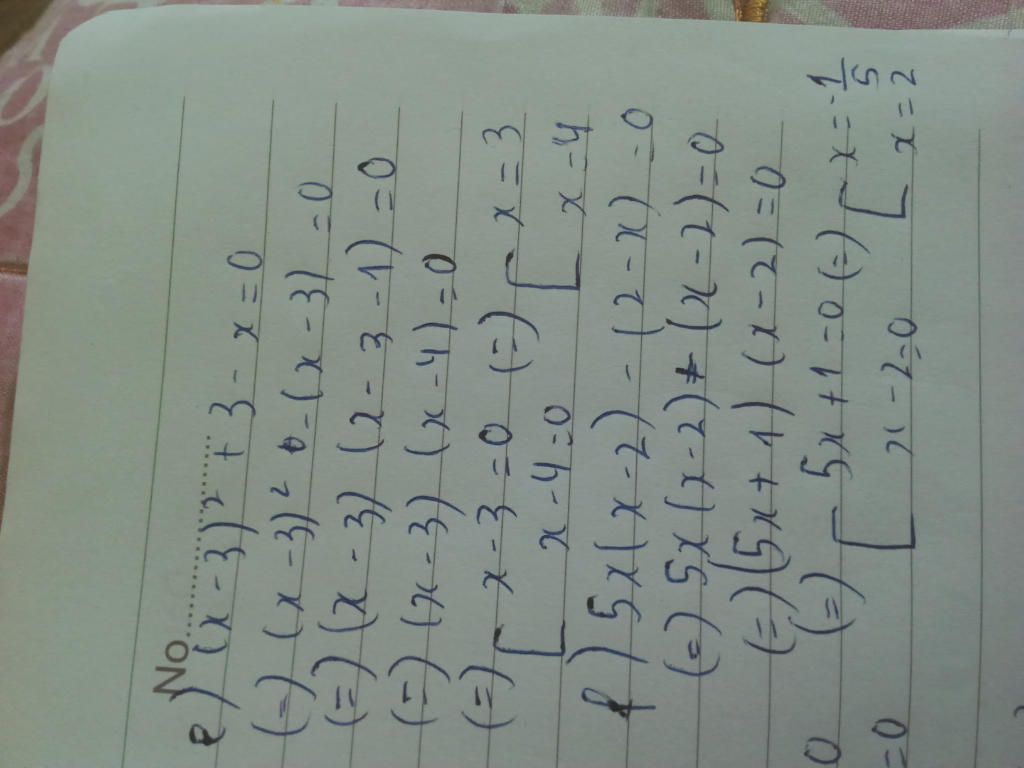 No
e) (x-3)² + 3 - x = 0
(=) (x-3)² - (x-3) = 0
(=) (x-3) (x-3-1) = 0
(=) (x-3) (x-4) = 0
(=) [ x-3=0 (=) [ x=3
x-4=0 x=4
f) 5x(x-2) - (2-x) = 0
(=) 5x(x-2) + (x-2) = 0
(=) (5x+1) (x-2) = 0
(=) [ 5x+1=0 (=) [ x=-1/5
x-2=0 x=2
0
=0